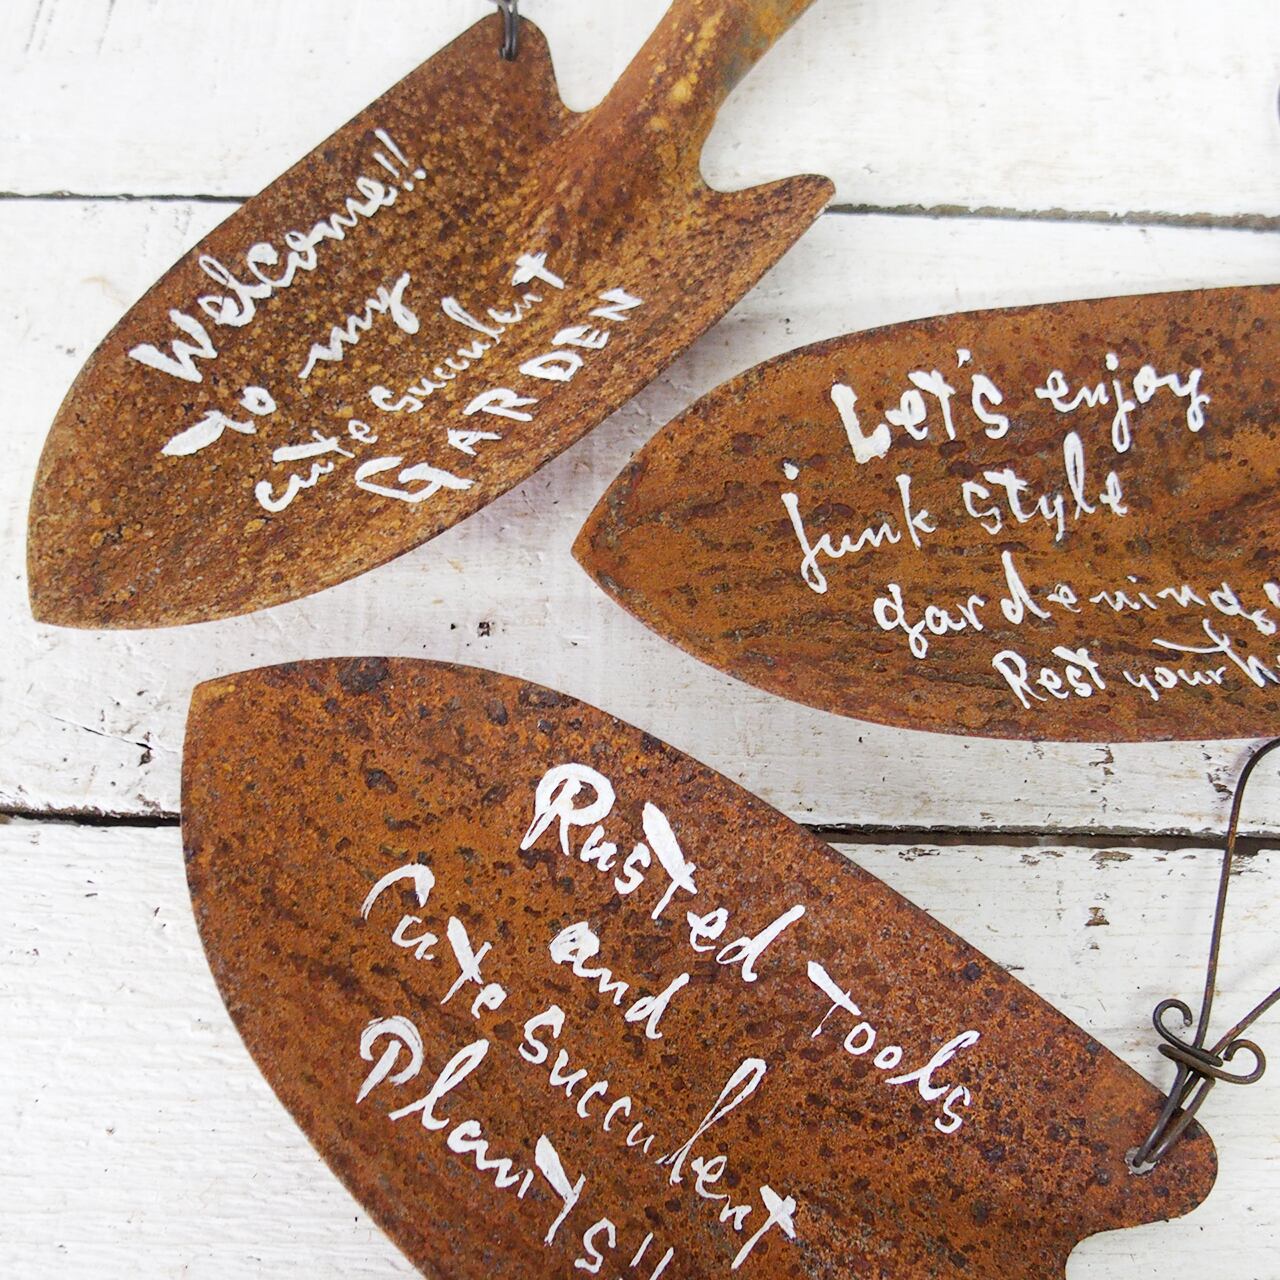 Welcome!!
to my
cute succulent
GARDEN
Let's enjoy
junk style
gardening
Rest your
Rusted tools
and
Cute succulent
Plants!!